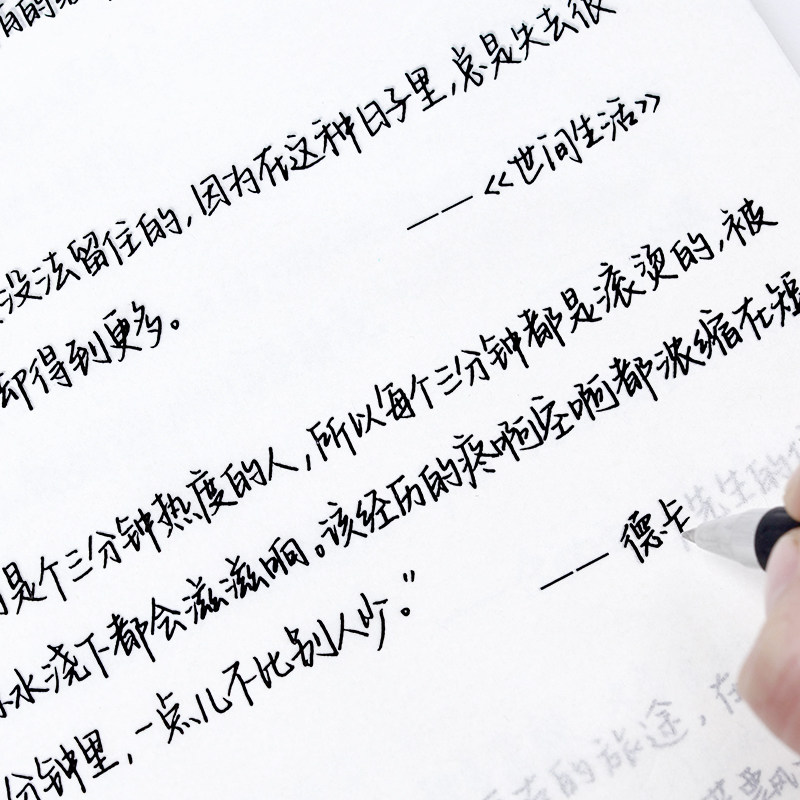 有的
没法留住的,因为在这种日子里,总是失去很
却得到更多。
——《世间生活》
是个三分钟热度的人,所以每个三分钟都是滚烫的,被
水浇下都会滋滋响。该经历的疼啊空啊都浓缩在短
分钟里,一点儿不比别人少。”
——德卡
先生的
的旅途,在